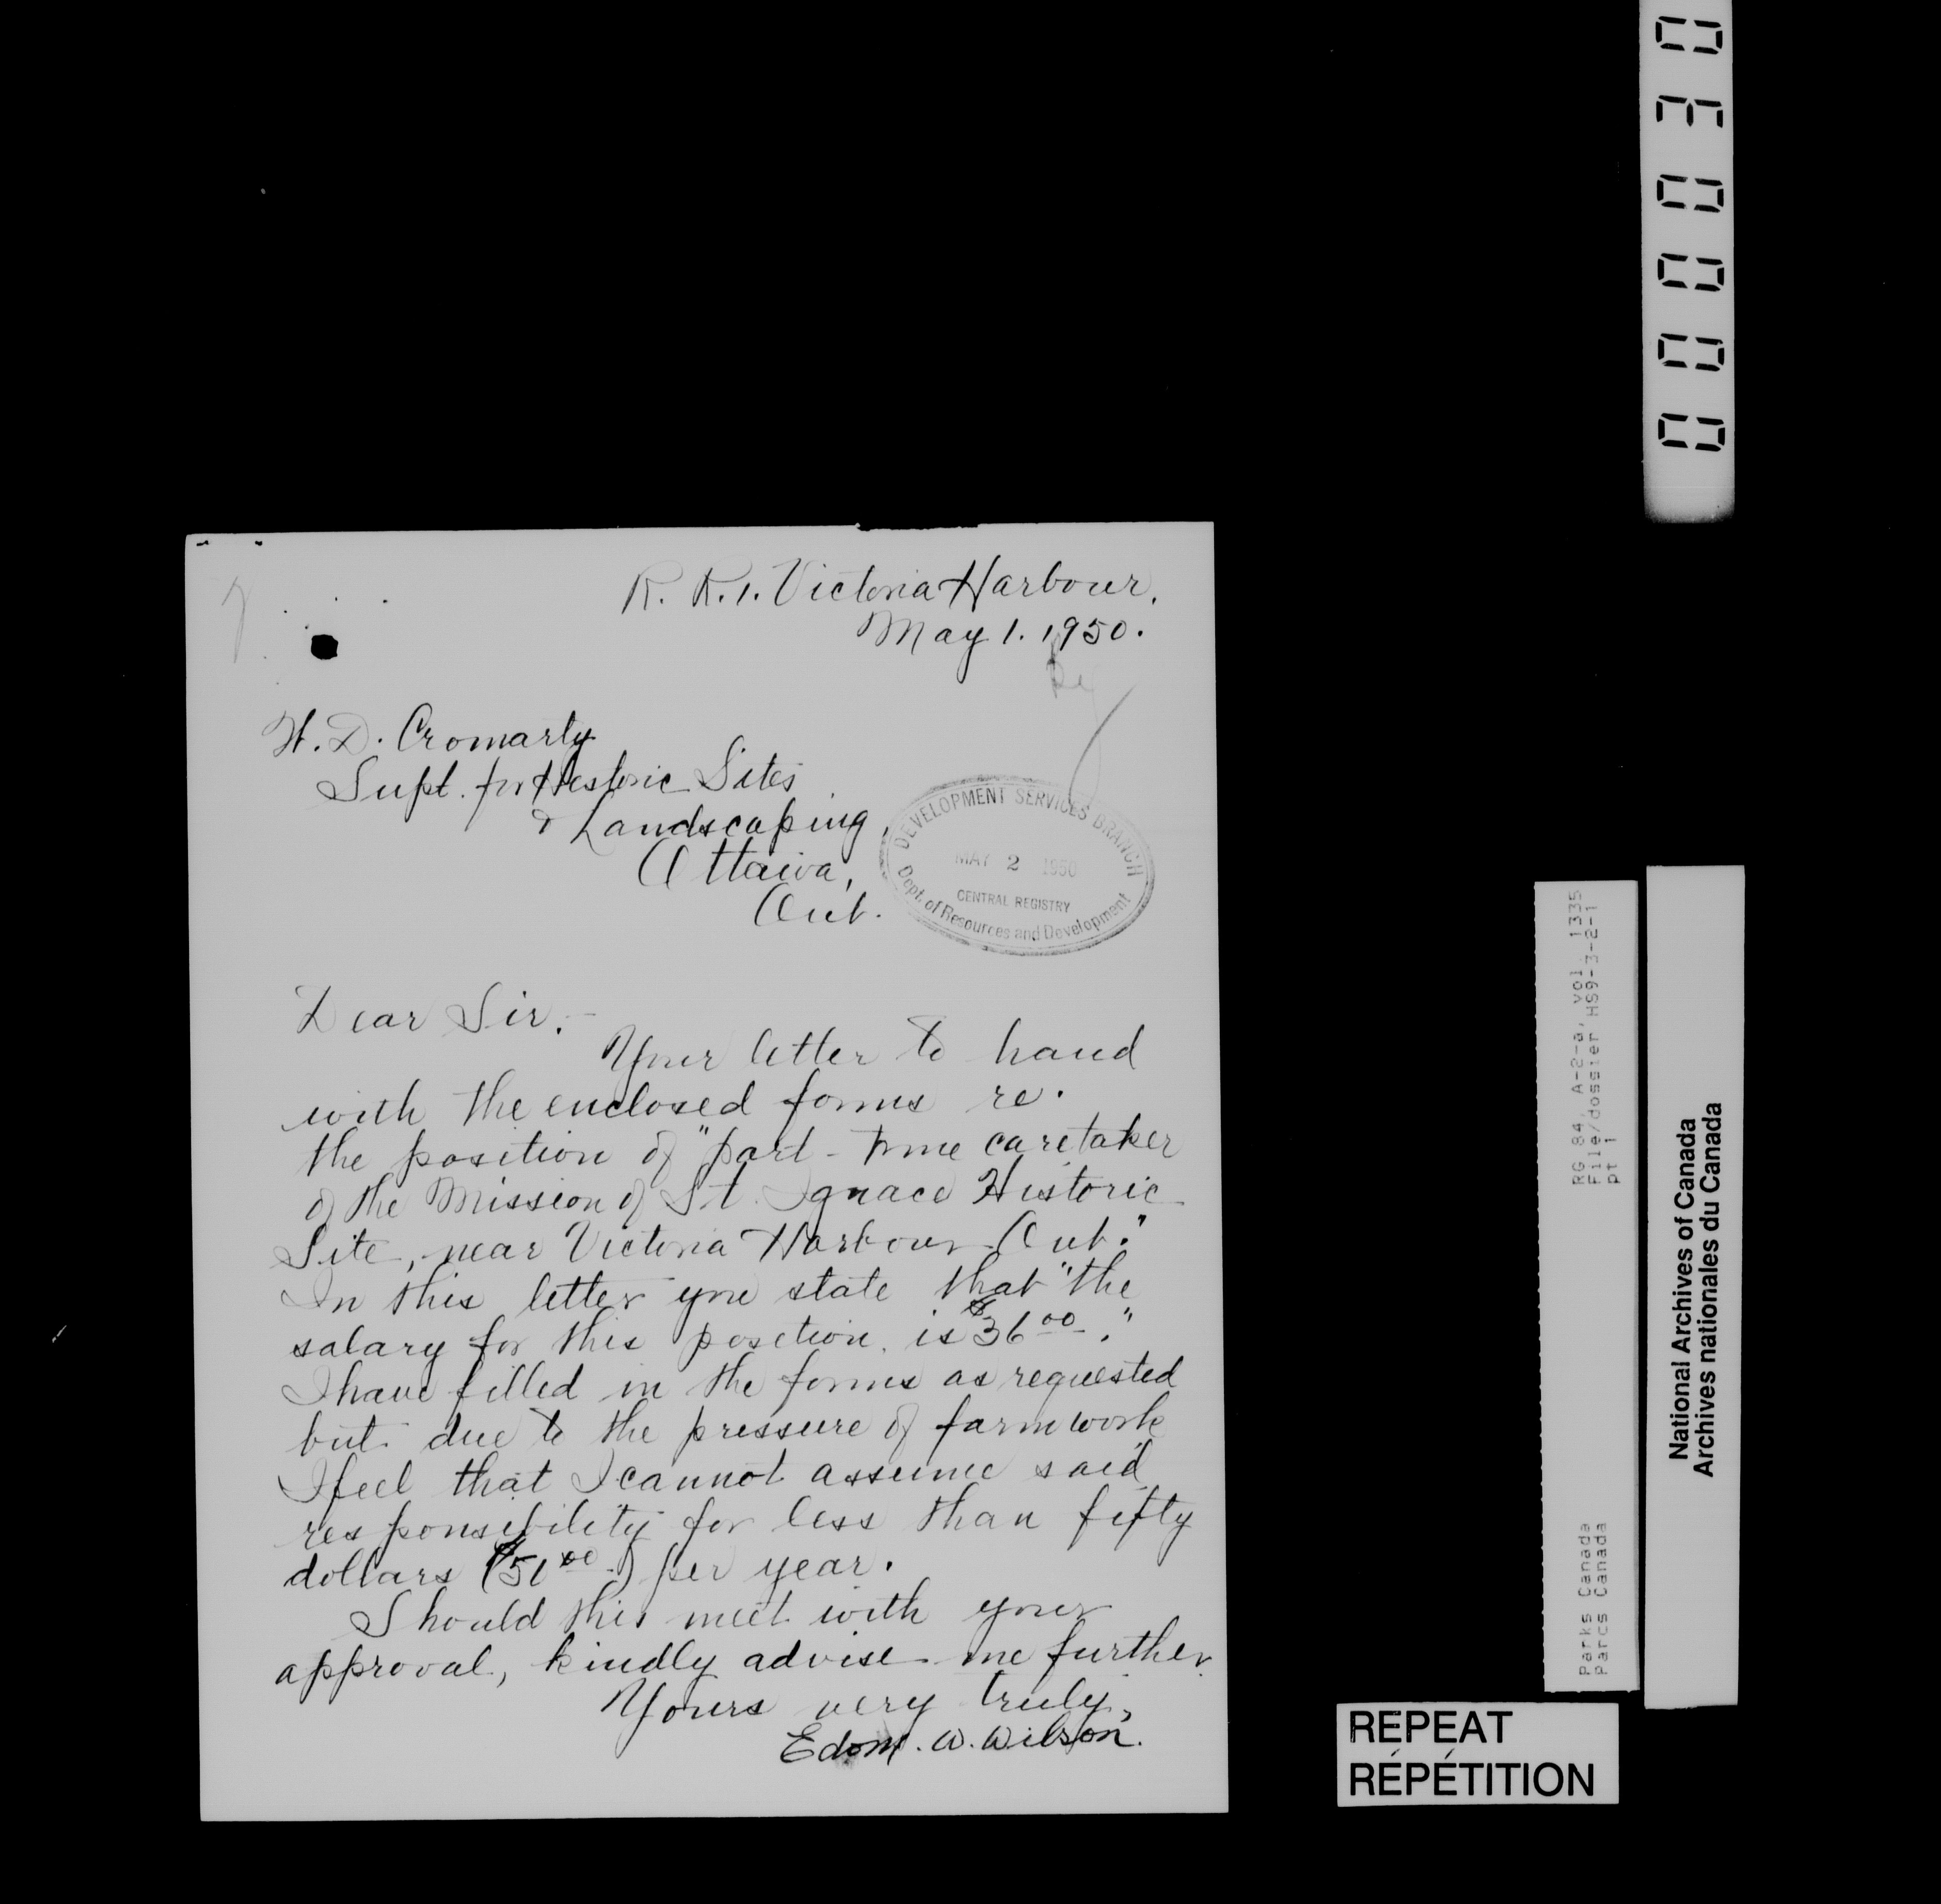 R. R. 1. Victoria Harbour,
May 1. 1950.
W. D. Cromarty
Supt. for Historic Sites
& Landscaping,
Ottawa,
Ont.
DEVELOPMENT SERVICES BRANCH
MAY 2 1950
CENTRAL REGISTRY
Dept. of Resources and Development
Dear Sir:-
Your letter to hand
with the enclosed forms re.
the position of "part-time caretaker
of the Mission of St. Ignace Historic
Site, near Victoria Harbour Ont."
In this letter you state that "the
salary for this position is $36.00."
I have filled in the forms as requested
but due to the pressure of farm work
I feel that I cannot assume said
responsibility for less than fifty
dollars ($50.00) per year.
Should this meet with your
approval, kindly advise me further.
Yours very truly,
Edom. W. Wilson.
RG 84, A-2-a, vol. 1335
File/dossier HS9-3-2-1
pt 1
Parks Canada
Parcs Canada
National Archives of Canada
Archives nationales du Canada
REPEAT
RÉPÉTITION